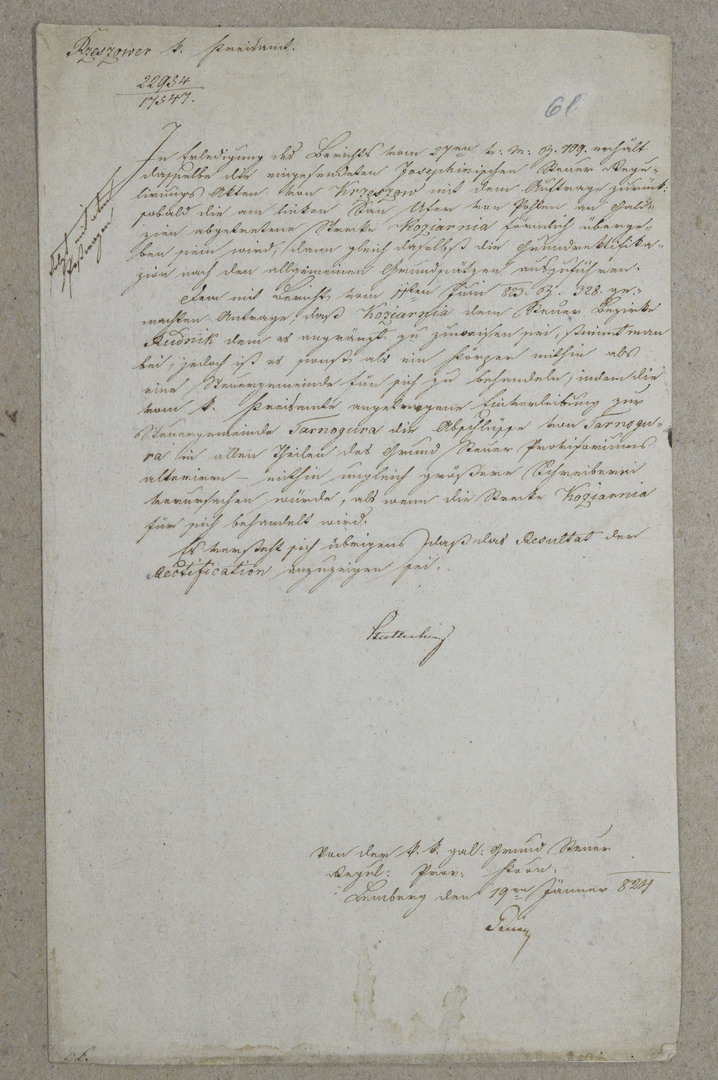 Rzeszower k. Kreisamt.
22954
17547.
61.
In Erledigung des Berichts vom 27ten v: M: Z. 109. erhält
dasselbe die eingesendeten Josephinischen Steuer Regu-
lirungs Akten von Krzeszow mit dem Auftrage zurük
sobald die am linken San Ufer von Pohlen an Gali-
zien abgetretene Strecke Koziarnia förmlich überge-
ben sein wird, dann gleich daselbst die Grundrektifika-
zion nach den allgemeinen Grundsätzen auszuführen.
Dem mit Bericht vom Juni 823. Z. 328. ge-
machten Antrage, daß Koziarnia dem Steuer Bezirke
Rudnik dem es angränzt, zu zuweisen sei, stimmt man
bei, jedoch ist es sonst als ein Körper mithin als
eine Steuergemeinde für sich zu behandeln, indem die
vom k. Kreisamte angetragene Einverleibung zur
Steuergemeinde Tarnogura die Abschlüsse von Tarnogu-
ra in allen Theilen des Grund Steuer Provisoriums
alteriren – mithin ungleich größere Schreiberei
verursachen würde, als wenn die Strecke Koziarnia
für sich behandelt wird.
Es versteht sich übrigens, daß das Resultat der
Rectification anzuzeigen sei.
Von der k. k. gal: Grund Steuer
Regul: Prov: Kōon.
Lemberg den 19ten Jänner 824